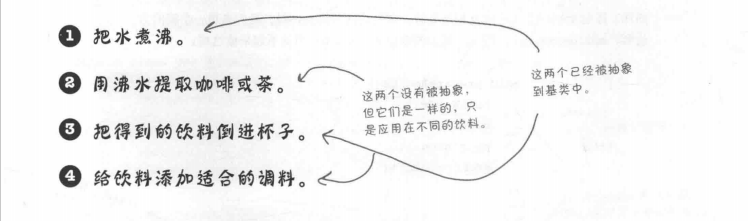 ❶ 把水煮沸。
❷ 用沸水提取咖啡或茶。
❸ 把得到的饮料倒进杯子。
❹ 给饮料添加适合的调料。
这两个没有被抽象，
但它们是一样的，只
是应用在不同的饮料。
这两个已经被抽象
到基类中。